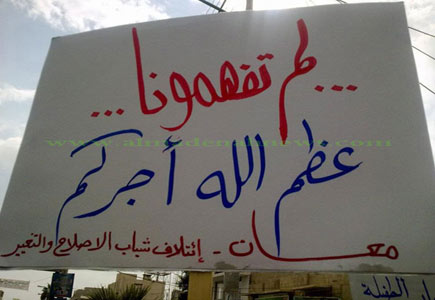 ...لم تفهمونا...
www.almadenahnews.com
عظم الله أجركم
معان - إئتلاف شباب الاصلاح والتغير